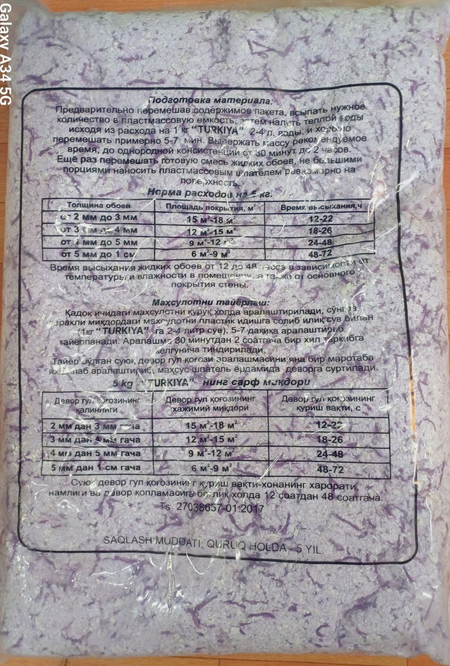 Подготовка материала:
Предварительно перемешав содержимое пакета, всыпать нужное
количество в пластмассовую емкость, затем налить теплой воды
исходя из расхода на 1 кг "TURKIYA" 2-4 л. воды, и хорошо
перемешать примерно 5-7 мин. Выдержать массу рекомендуемое
время, до однородной консистенции от 30 минут до 2 часов.
Ещё раз перемешать готовую смесь жидких обоев, не большими
порциями наносить пластмассовым шпателем равномерно на
поверхность.
Норма расходов на 5 кг.
Толщина обоев Площадь покрытия, м² Время высыхания,ч
от 2 мм до 3 мм 15 м²-18 м² 12-22
от 3 мм до 4 мм 12 м²-15 м² 18-26
от 4 мм до 5 мм 9 м²-12 м² 24-48
от 5 мм до 1 см 6 м²-9 м² 48-72
Время высыхания жидких обоев от 12 до 48 часов в зависимости от
температуры и влажности в помещении, а также от основного
покрытия стены.
Махсулотни тайёрлаш:
Қадоқ ичидаги махсулотни қуруқ холда аралаштирилади, сўнг
керакли миқдордаги махсулотни пластик идишга солиб илиқ сув билан
(1кг "TURKIYA" га 2-4 литр сув), 5-7 дақиқа аралаштириб
тайёрланади. Аралашма 30 минутдан 2 соатгача бир хил таркибга
келгунича тиндирилади.
Тайёр бўлган суюқ девор гул қоғози аралашмасини яна бир маротаба
аралаштириб, махсус шпатель ёрдамида деворга суртилади.
5 kg - "TURKIYA" нинг сарф миқдори
Девор гул қоғозининг қалинлиги Девор гул қоғозининг хажимий миқдори Девор гул қоғозининг қуриш вақти, с
2 мм дан 3 мм гача 15 м²-18 м² 12-22
3 мм дан 4 мм гача 12 м²-15 м² 18-26
4 мм дан 5 мм гача 9 м²-12 м² 24-48
5 мм дан 1 см гача 6 м²-9 м² 48-72
Суюқ девор гул қоғозининг қуриш вақти-хонанинг харорати,
намлиги ва девор қопламасига боғлиқ холда 12 соатдан 48 соатгача.
Ts 27038657-01:2017
SAQLASH MUDDATI, QURUQ HOLDA - 5 YIL.
Galaxy A34 5G